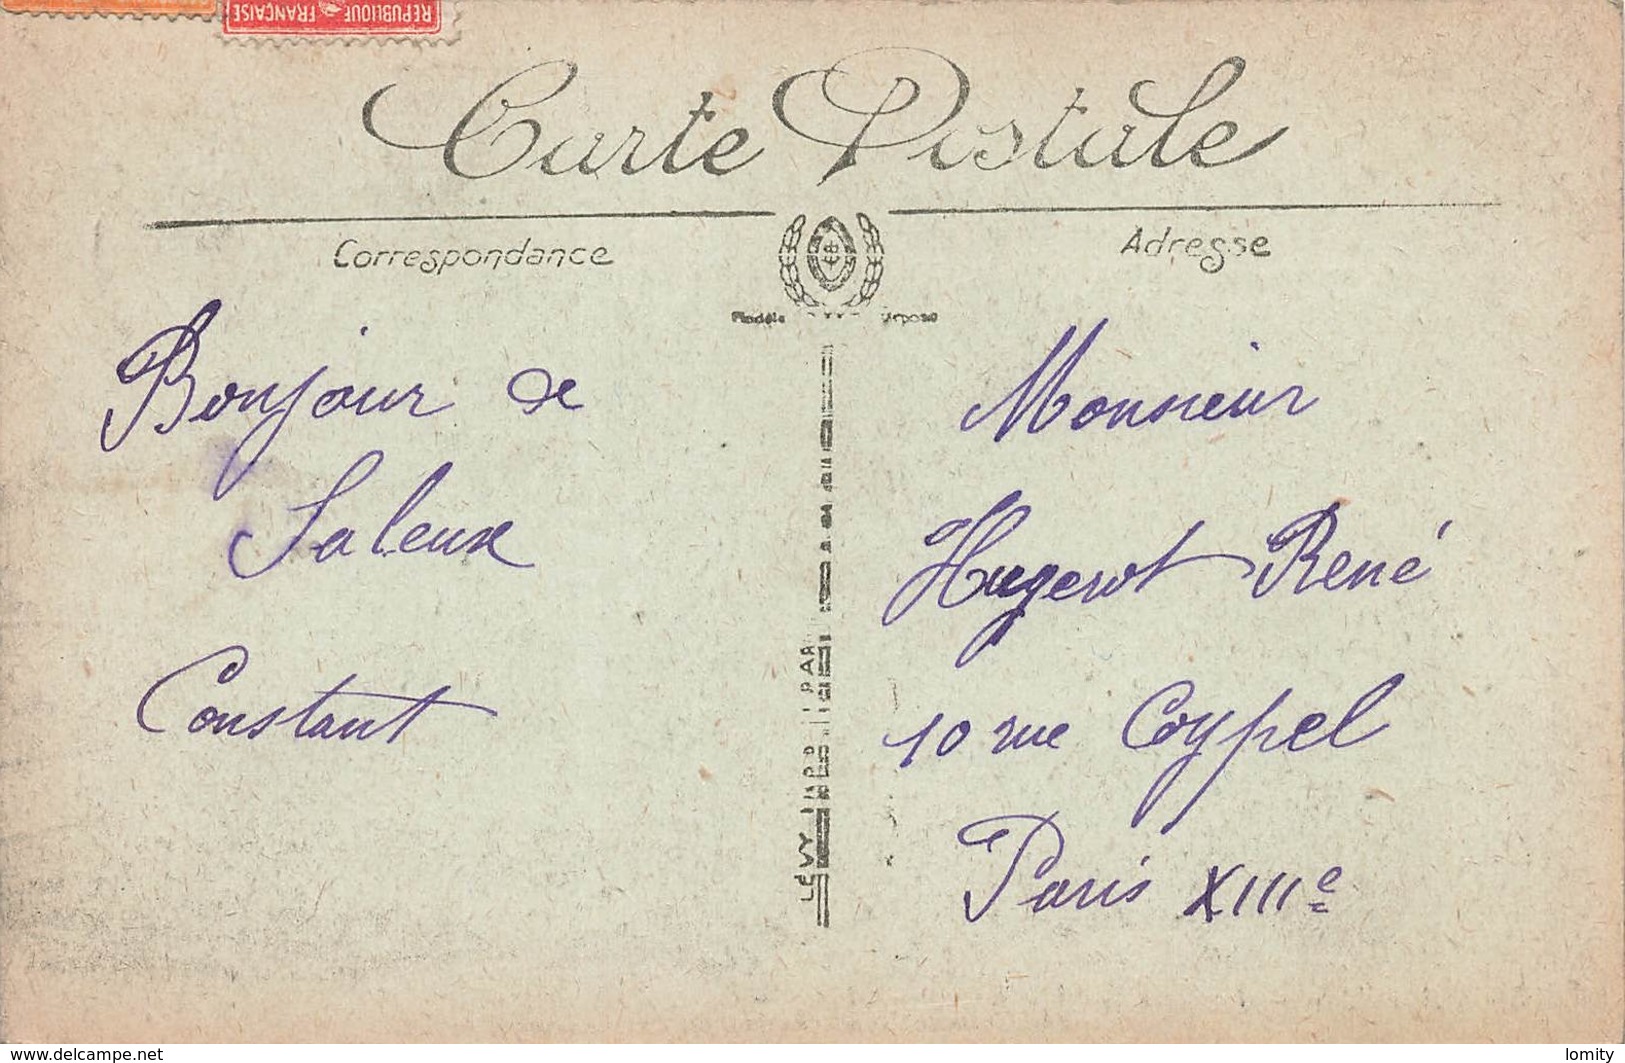 RÉPUBLIQUE FRANÇAISE
Carte Postale
Correspondance
Adresse
Modèle
Bonjour de
Saleux
Constant
Monsieur
Hugerot René
10 rue Coypel
Paris XIIIe
LÉVY
www.delcampe.net
lomity